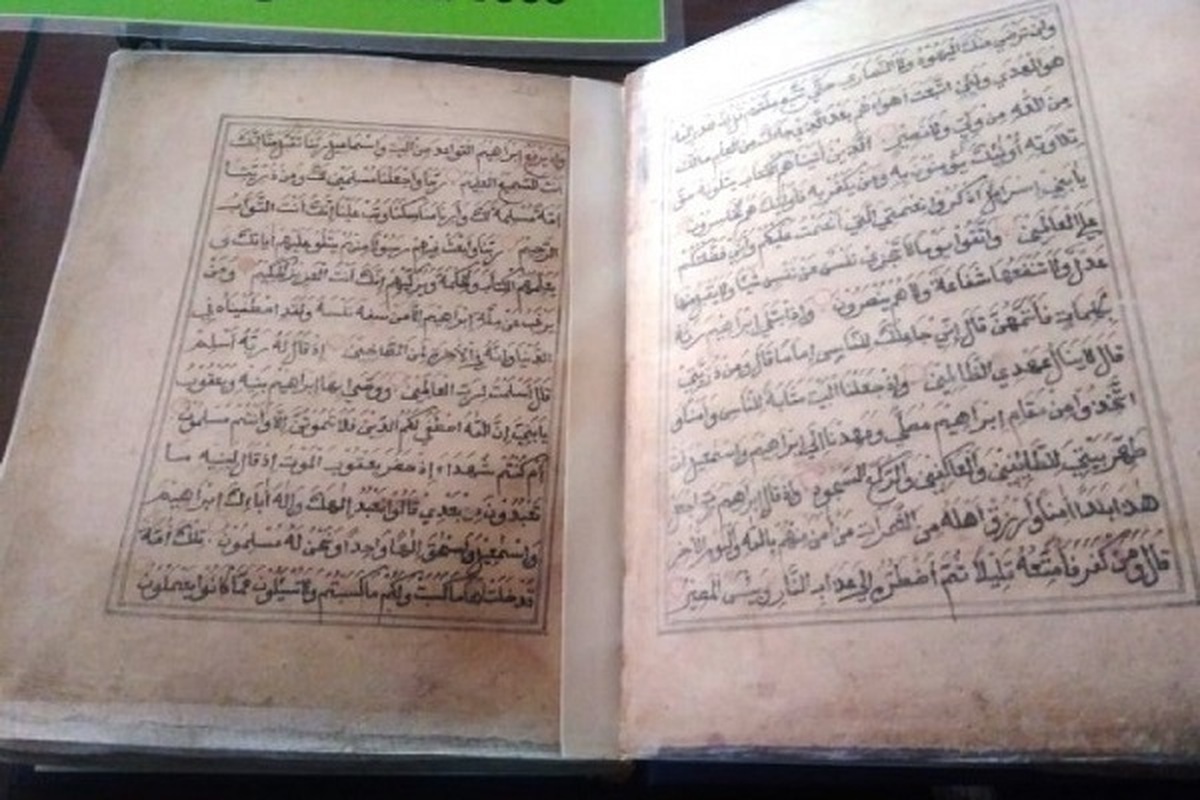 ولن ترضى عنك اليهود ولا النصارى حتى تتبع ملتهم قل إن هدى الله
هو الهدى ولئن اتبعت أهواءهم بعد الذي جاءك من العلم مالك
من الله من ولي ولا نصير الذين آتيناهم الكتاب يتلونه حق
تلاوته أولئك يؤمنون به ومن يكفر به فأولئك هم الخاسرون
يا بني إسرائيل اذكروا نعمتي التي أنعمت عليكم وأني فضلتكم
على العالمين واتقوا يوما لا تجزى نفس عن نفس شيئا ولا يقبل منها
عدل ولا تنفعها شفاعة ولا هم ينصرون وإذ ابتلى إبراهيم ربه
بكلمات فأتمهن قال إني جاعلك للناس إماما قال ومن ذريتي
قال لا ينال عهدي الظالمين وإذ جعلنا البيت مثابة للناس وأمنا و
اتخذوا من مقام إبراهيم مصلى وعهدنا إلى إبراهيم وإسمعيل أن
طهرا بيتي للطائفين والعاكفين والركع السجود وإذ قال إبراهيم رب اجعل
هذا بلدا آمنا وارزق أهله من الثمرات من آمن منهم بالله واليوم الآخر
قال ومن كفر فأمتعه قليلا ثم أضطره إلى عذاب النار وبئس المصير
وإذ يرفع إبراهيم القواعد من البيت وإسماعيل ربنا تقبل منا إنك
أنت السميع العليم ربنا واجعلنا مسلمين لك ومن ذريتنا
أمة مسلمة لك وأرنا مناسكنا وتب علينا إنك أنت التواب
الرحيم ربنا وابعث فيهم رسولا منهم يتلو عليهم آياتك و
يعلمهم الكتاب والحكمة ويزكيهم إنك أنت العزيز الحكيم ومن
يرغب عن ملة إبراهيم إلا من سفه نفسه ولقد اصطفيناه في
الدنيا وإنه في الآخرة لمن الصالحين إذ قال له ربه أسلم
قال أسلمت لرب العالمين ووصى بها إبراهيم بنيه ويعقوب
يا بني إن الله اصطفى لكم الدين فلا تموتن إلا وأنتم مسلمون
أم كنتم شهداء إذ حضر يعقوب الموت إذ قال لبنيه ما
تعبدون من بعدي قالوا نعبد إلهك وإله آبائك إبراهيم
وإسمعيل وإسحق إلها واحدا ونحن له مسلمون تلك أمة
قد خلت لها ما كسبت ولكم ما كسبتم ولا تسئلون عما كانوا يعملون